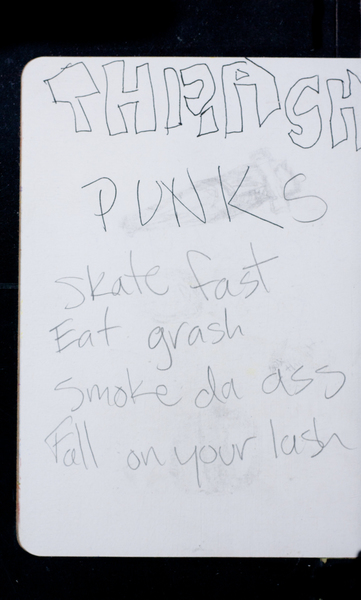 THRASH
PUNKS
Skate fast
Eat grash
Smoke da ass
Fall on your lash